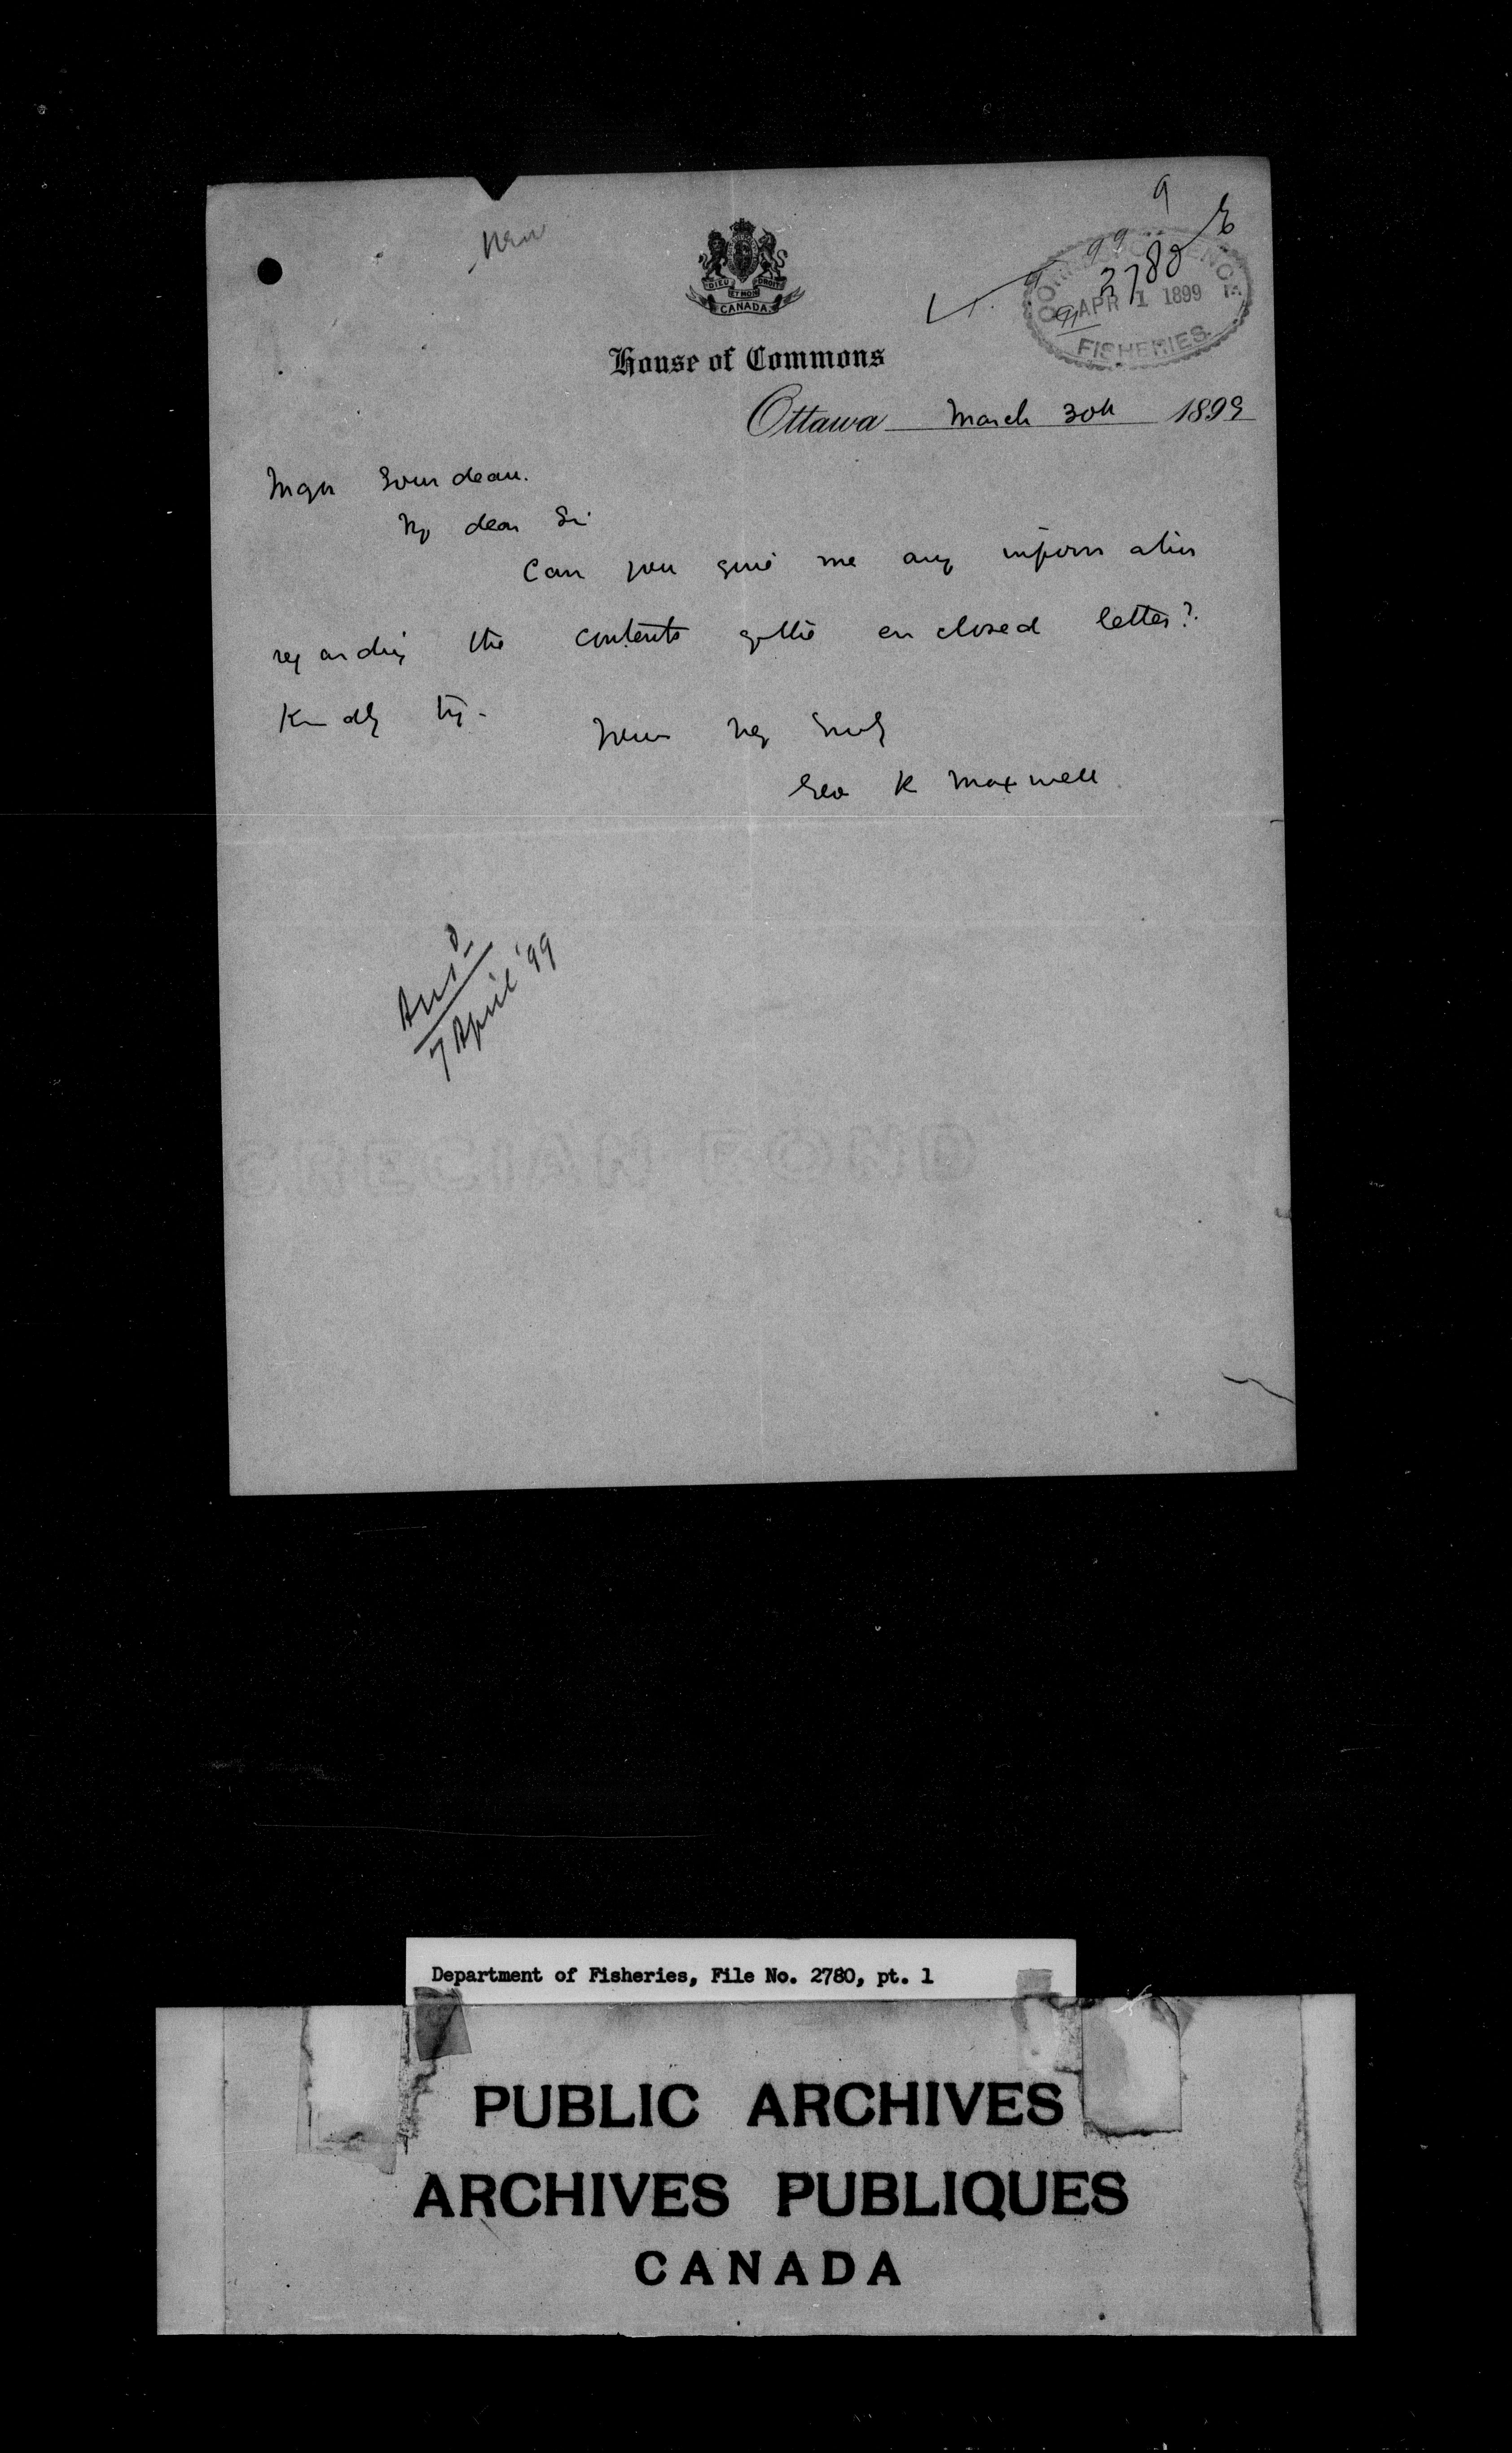 New
9
99
9
2780
91
CORRESPONDENCE
APR 1 1899
FISHERIES.
DIEU ET MON DROIT
CANADA
House of Commons
Ottawa March 30th 1899
Major Gourdeau.
My dear Sir
Can you give me any information
regarding the contents of the enclosed letter?
Kindly try.
Yours very truly
Geo R Maxwell
Ansd
7 April '99
GRECIAN BOND
Department of Fisheries, File No. 2780, pt. 1
PUBLIC ARCHIVES
ARCHIVES PUBLIQUES
CANADA